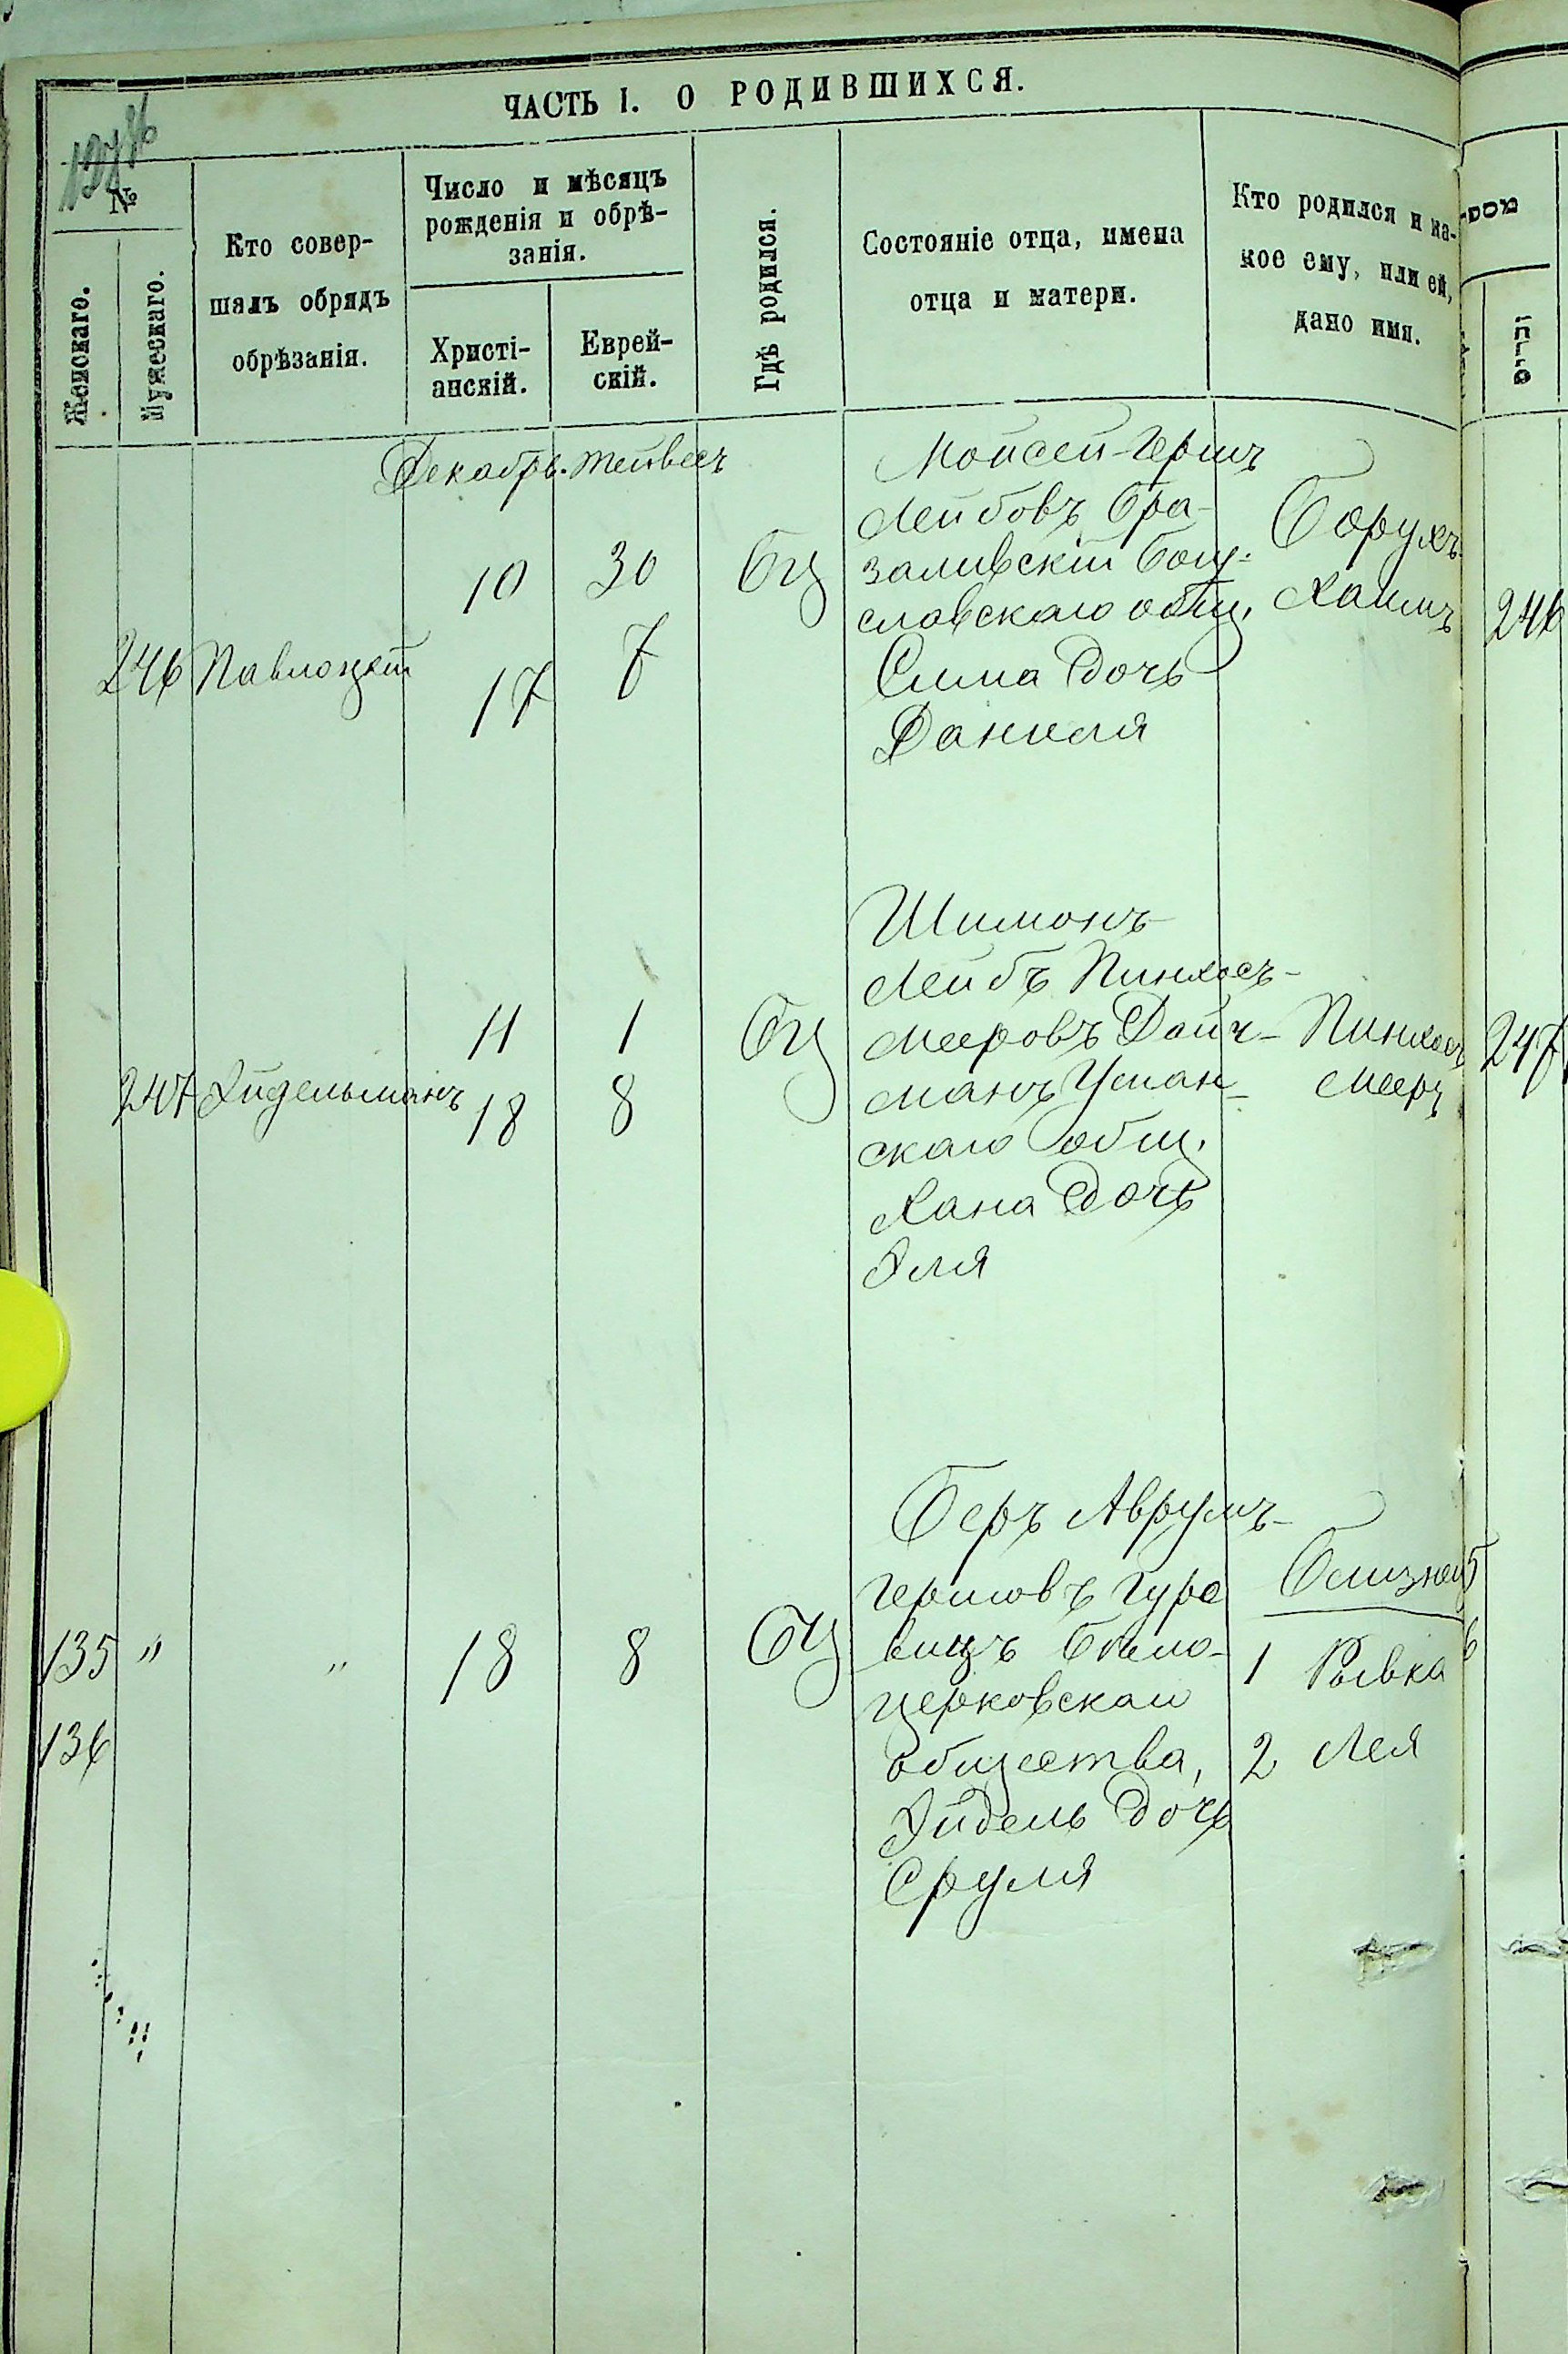 ЧАСТЬ I. О РОДИВШИХСЯ.
№
Женскаго.
Мужескаго.
Кто совер-
шалъ обрядъ
обрѣзанія.
Число и мѣсяцъ
рожденія и обрѣ-
занія.
Христі-
анскій.
Еврей-
скій.
Гдѣ родился.
Состояніе отца, имена
отца и матери.
Кто родился и ка-
кое ему, или ей,
дано имя.
Декабрь. Тейвесъ
246 Павлоцкій
10 30
17 7
БЦ
Мойсей-Гершъ
Лейбовъ Бра-
заливскій Богу-
славскаго общ.
Сима дочь
Даниеля
Борухъ
Хаимъ
246
247 Эйдельманъ
11 1
18 8
БЦ
Шимонъ
Лейбъ Пинхасъ-
Мееровъ Дойч-
манъ Уман-
скаго общ.
Хана дочь
Эля
Пинхасъ
Мееръ
247
135 " "
136
18 8
БЦ
Беръ Аврумъ-
Гершовъ Гуре
вицъ Бѣло-
церковскаго
общества,
Эйдель дочь
Сруля
Близнец
1 Рывка
2 Лея